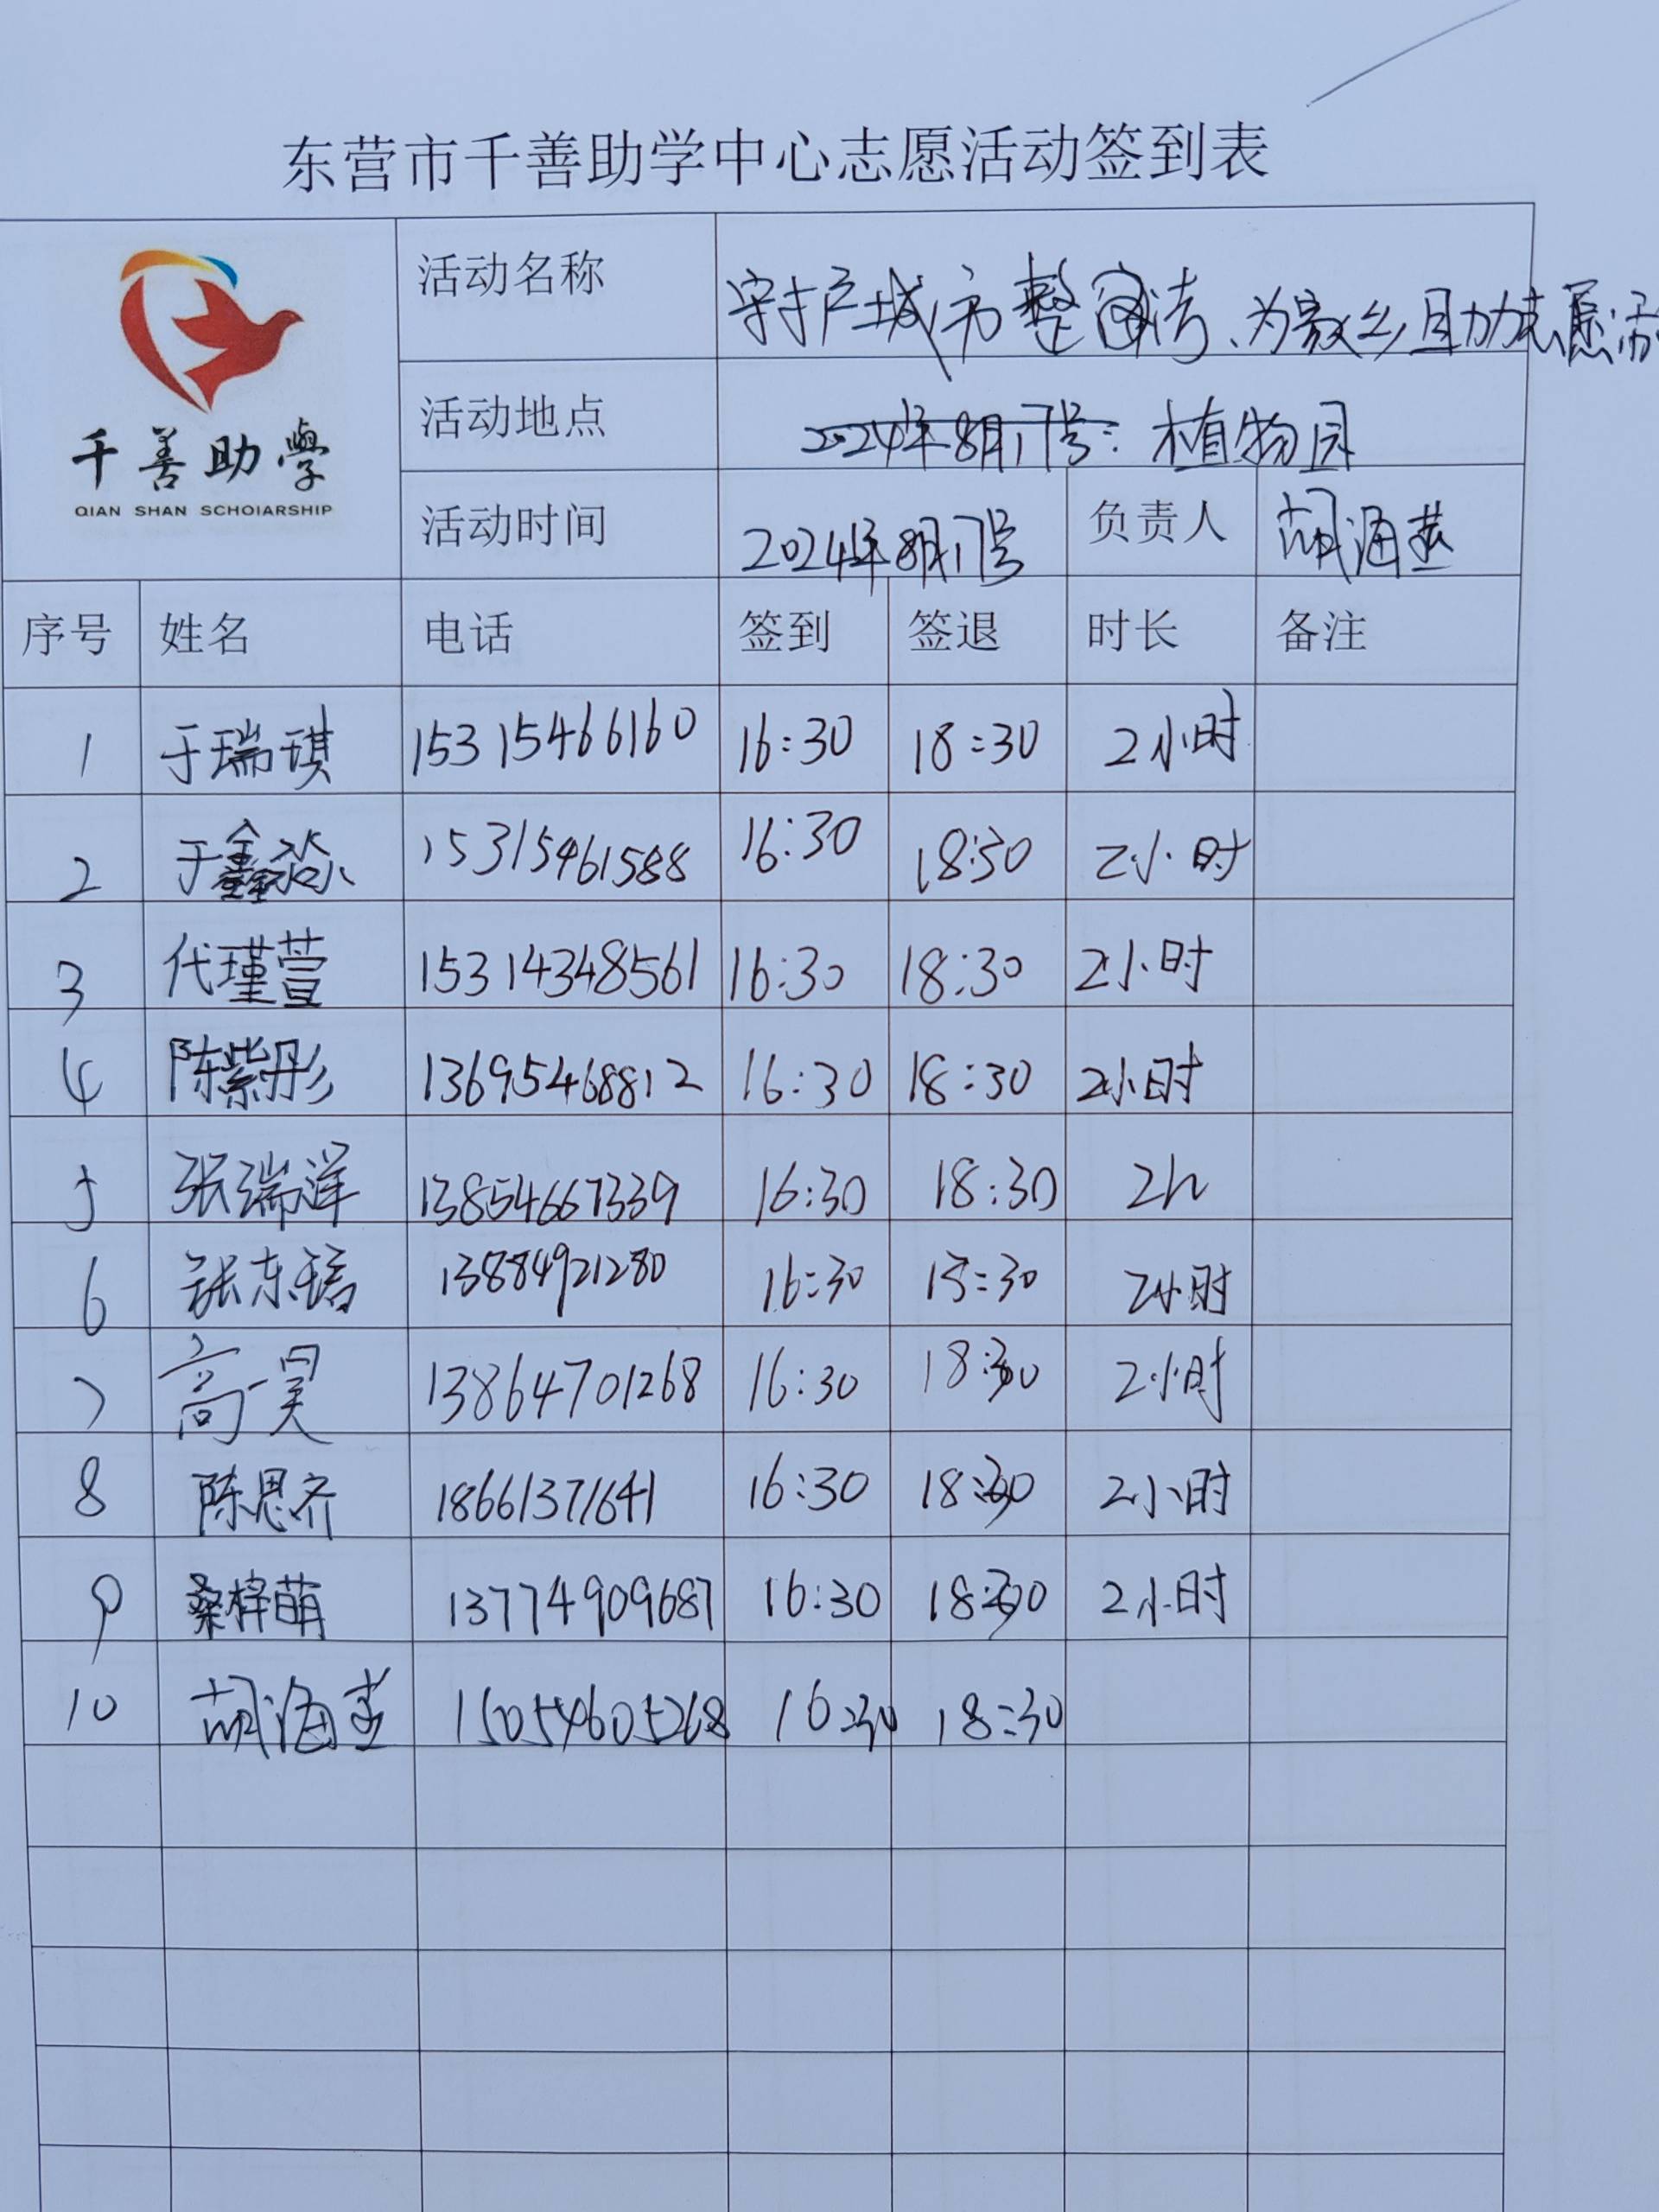 东营市千善助学中心志愿活动签到表
千善助學
QIAN SHAN SCHOIARSHIP
活动名称 守护城市整洁、为家乡助力志愿活
活动地点 2024年8月17号: 植物园
活动时间 2024年8月17号 负责人 胡海燕
序号 姓名 电话 签到 签退 时长 备注
1 于瑞琪 15315466160 16:30 18:30 2小时
2 于鑫淼 15315461588 16:30 18:30 2小时
3 代瑾萱 15314348561 16:30 18:30 2小时
4 陈紫彤 13695468812 16:30 18:30 2小时
5 张瑞洋 13854667339 16:30 18:30 2h
6 张东 13884921280 16:30 18:30 2小时
7 高一昊 13864701268 16:30 18:30 2小时
8 陈思齐 18661371641 16:30 18:30 2小时
9 桑梓萌 13774909687 16:30 18:30 2小时
10 胡海燕 15054605268 16:30 18:30